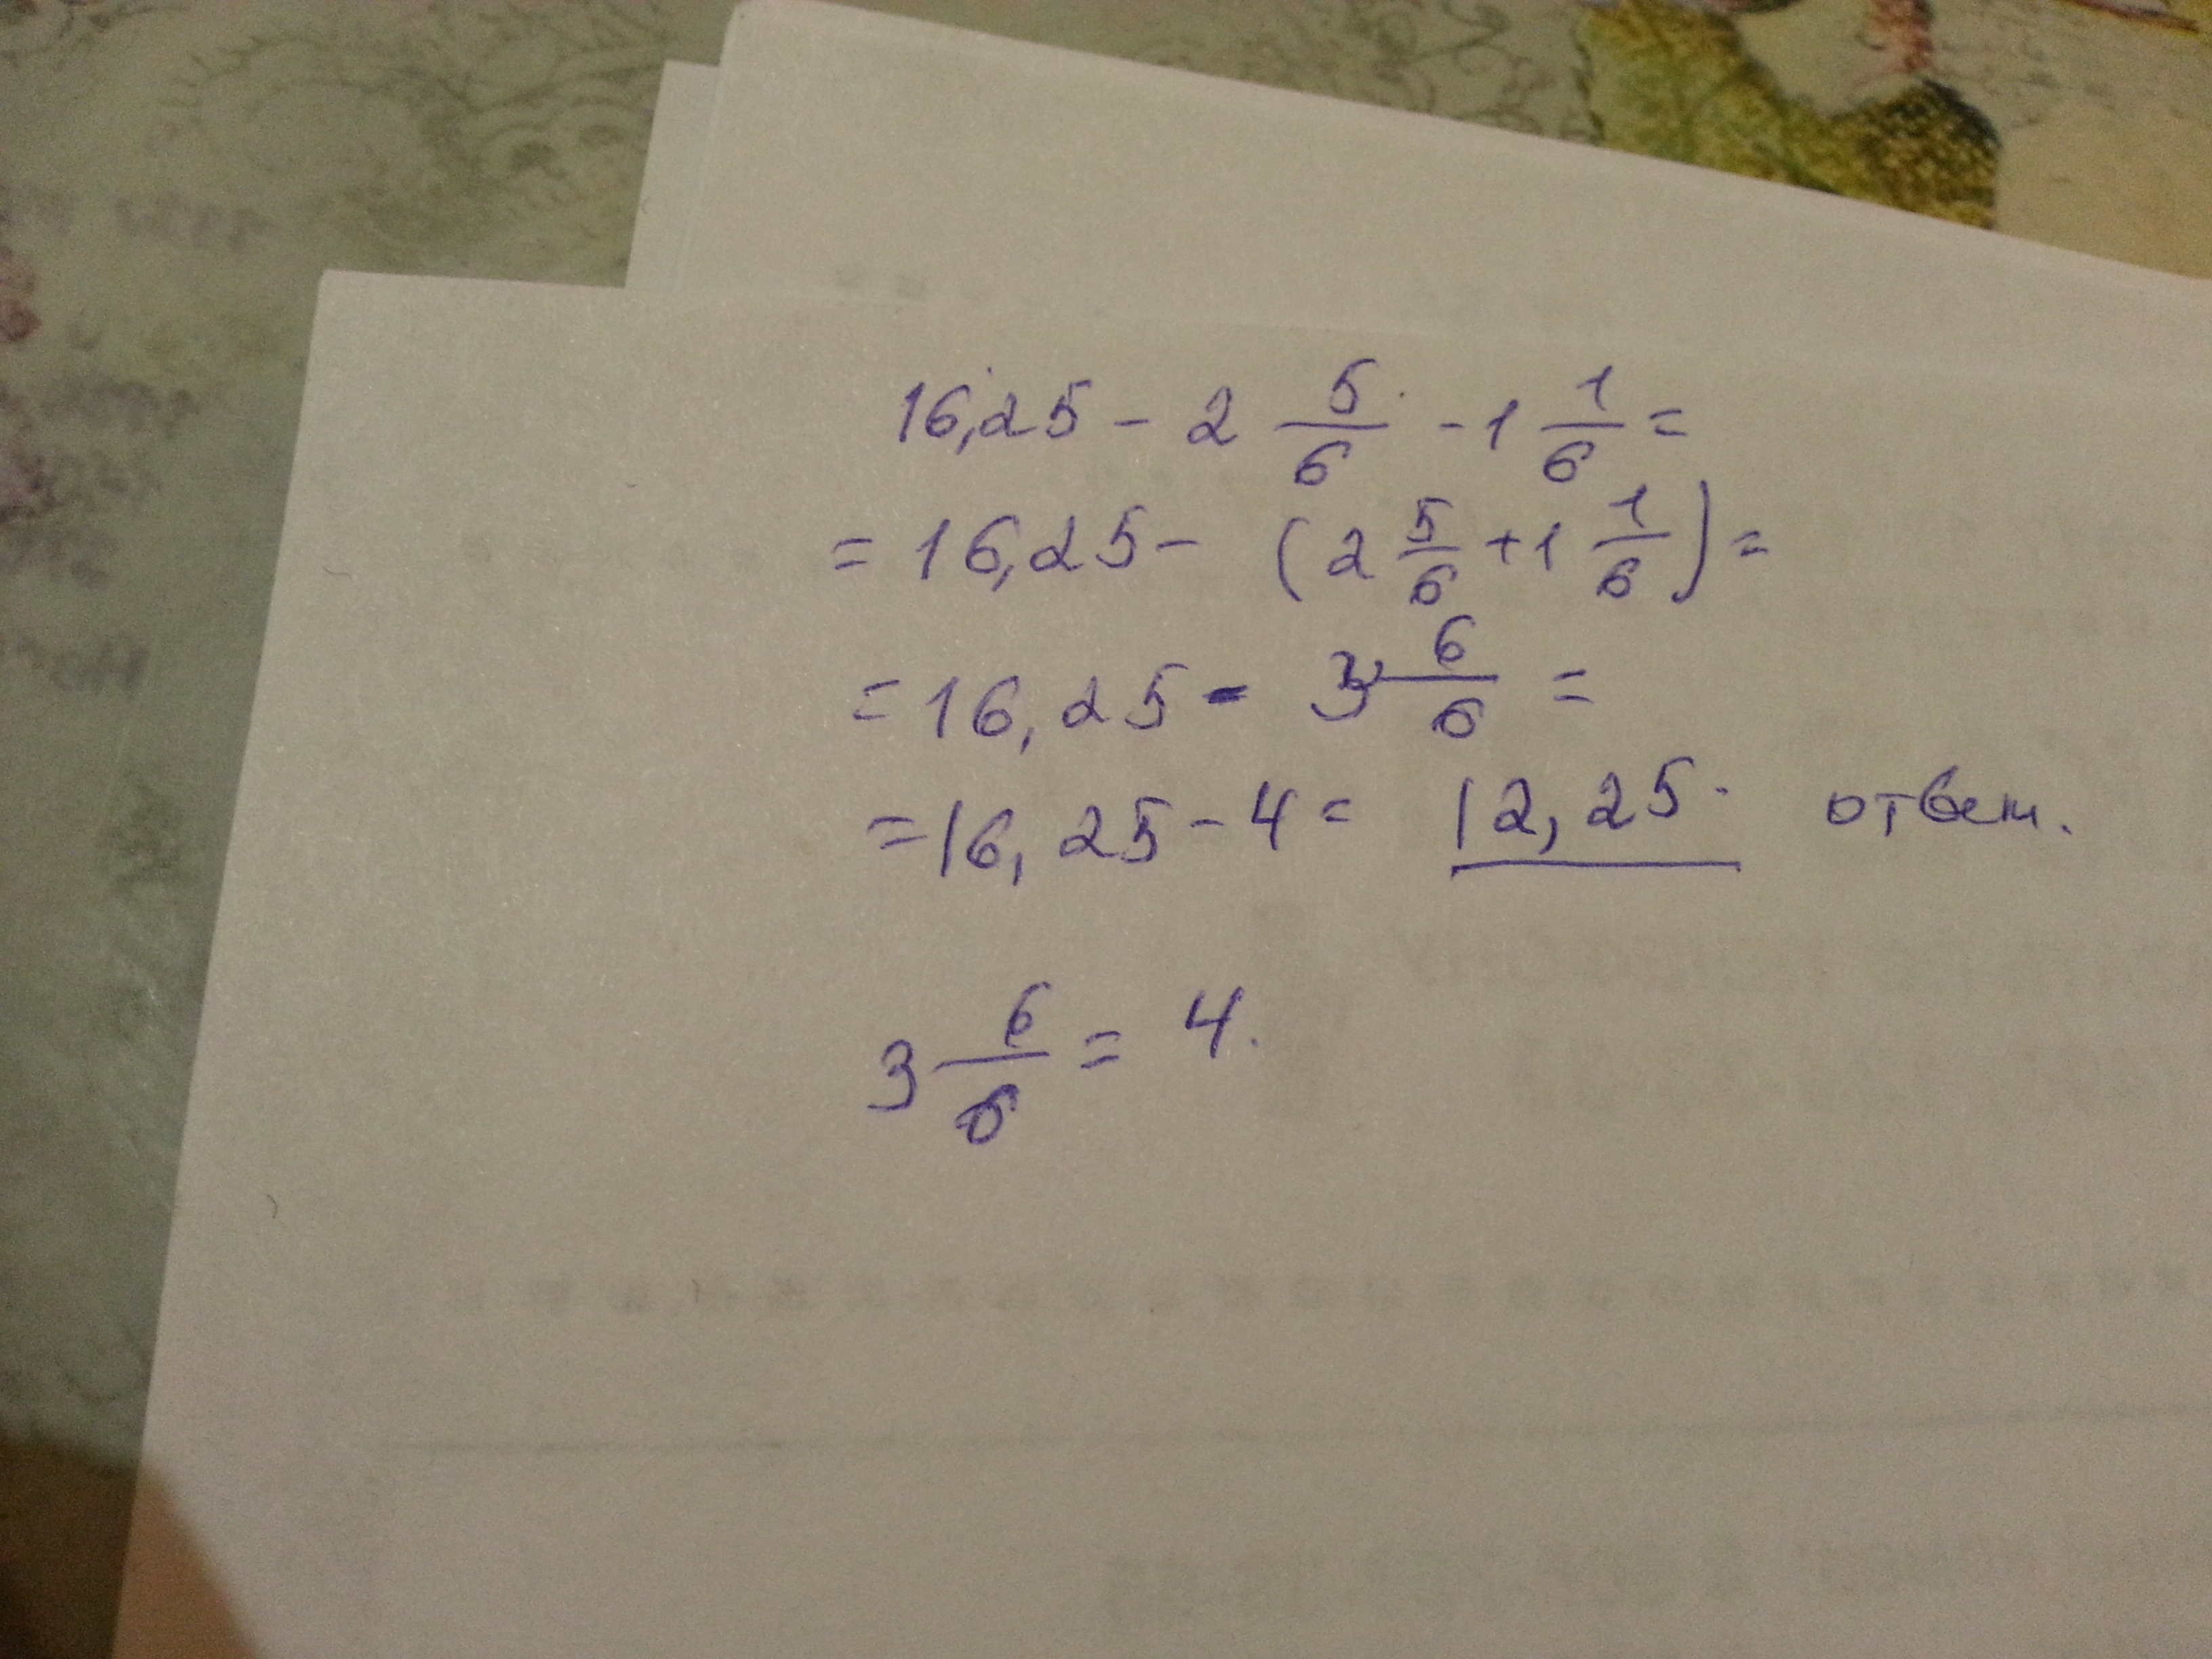 16,25 - 2 5/6 - 1 1/6 =
= 16,25 - (2 5/6 + 1 1/6) =
= 16,25 - 3 6/6 =
= 16,25 - 4 = 12,25. ответ.
3 6/6 = 4.